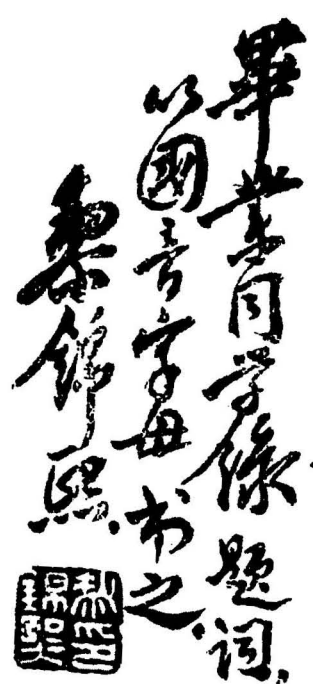 畢業同学錄題詞，
以國音字母书之，
黎錦熙
黎印
錦熙